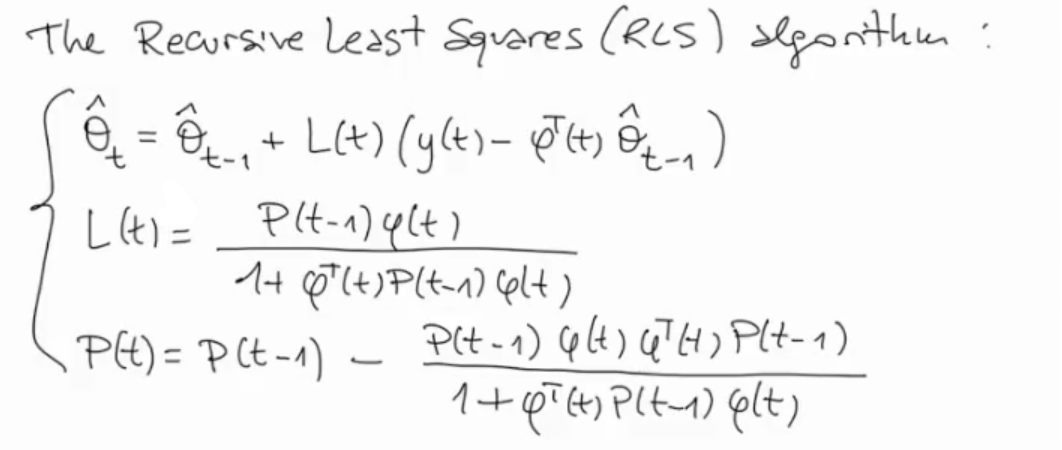 The Recursive Least Squares (RLS) algorithm :
θ̂_t = θ̂_{t-1} + L(t) (y(t) - φᵀ(t) θ̂_{t-1})
L(t) = \frac{P(t-1) φ(t)}{1 + φᵀ(t) P(t-1) φ(t)}
P(t) = P(t-1) - \frac{P(t-1) φ(t) φᵀ(t) P(t-1)}{1 + φᵀ(t) P(t-1) φ(t)}